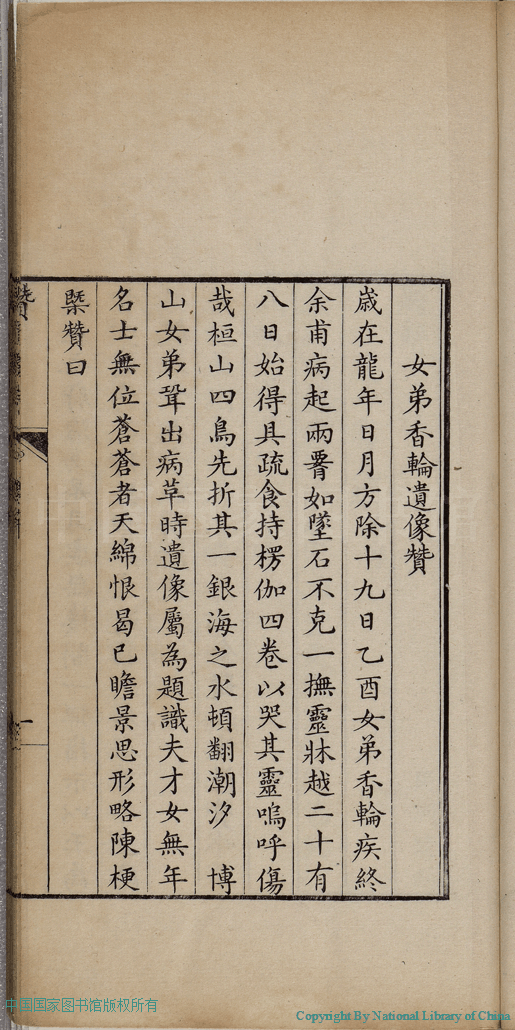 女弟香輪遺像贊
歳在龍年日月方除十九日乙酉女弟香輪疾終
余甫病起兩膂如墜石不克一撫靈牀越二十有
八日始得具疏食持楞伽四卷以哭其靈嗚呼傷
哉桓山四鳥先折其一銀海之水頓翻潮汐 博
山女弟聳出病草時遺像屬為題識夫才女無年
名士無位蒼蒼者天綿恨曷已瞻景思形略陳梗
槩贊曰
中国国家图书馆版权所有
Copyright By National Library of China